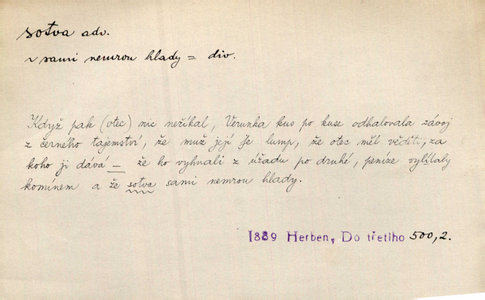 sotva adv.
~ sami nemrou hlady = div.
Když pak (otec) nic neříkal, Verunka kus po kuse odhalovala závoj
z černého tajemství, že muž její je lump, že otec měl věděti, za
koho ji dává — že ho vyhnali z úřadu po druhé, peníze vylítaly
komínem a že sotva sami nemrou hlady.
1889 Herben, Do třetího 500,2.